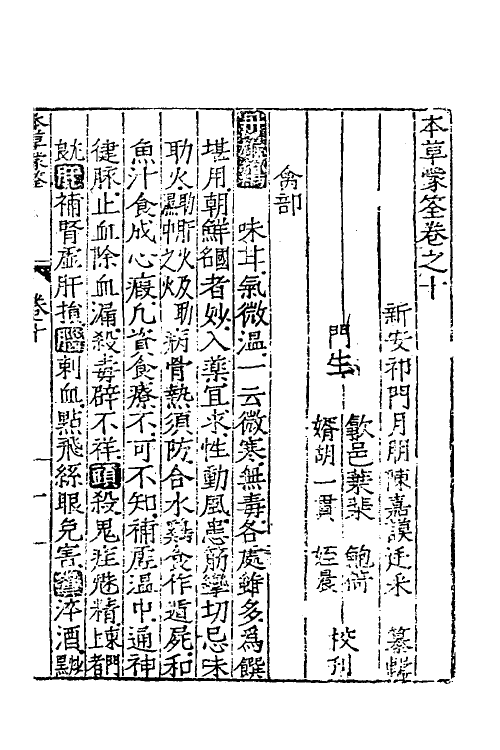 本草蒙筌卷之十
新安祁門月朋陳嘉謨廷采 纂輯
門生
歙邑葉棐 鮑倚
婿胡一貫 姪晨
校刊
禽部
丹雄鷄 味甘氣微温一云微寒無毒各處雖多為饌
堪用朝鮮國者妙入藥宜求性動風患筋攣切忌味
助火助肝火及助濕中之火病骨熱須防合水鷄食作遁屍和
魚汁食成心瘕凡資食療不可不知補虛温中通神
健脾止血除血漏殺毒辟不祥頭殺鬼疰魅精上東門者
尤肝補腎虛肝損腦刺血點飛絲眼免害淬酒點
本草蒙筌
卷十
一